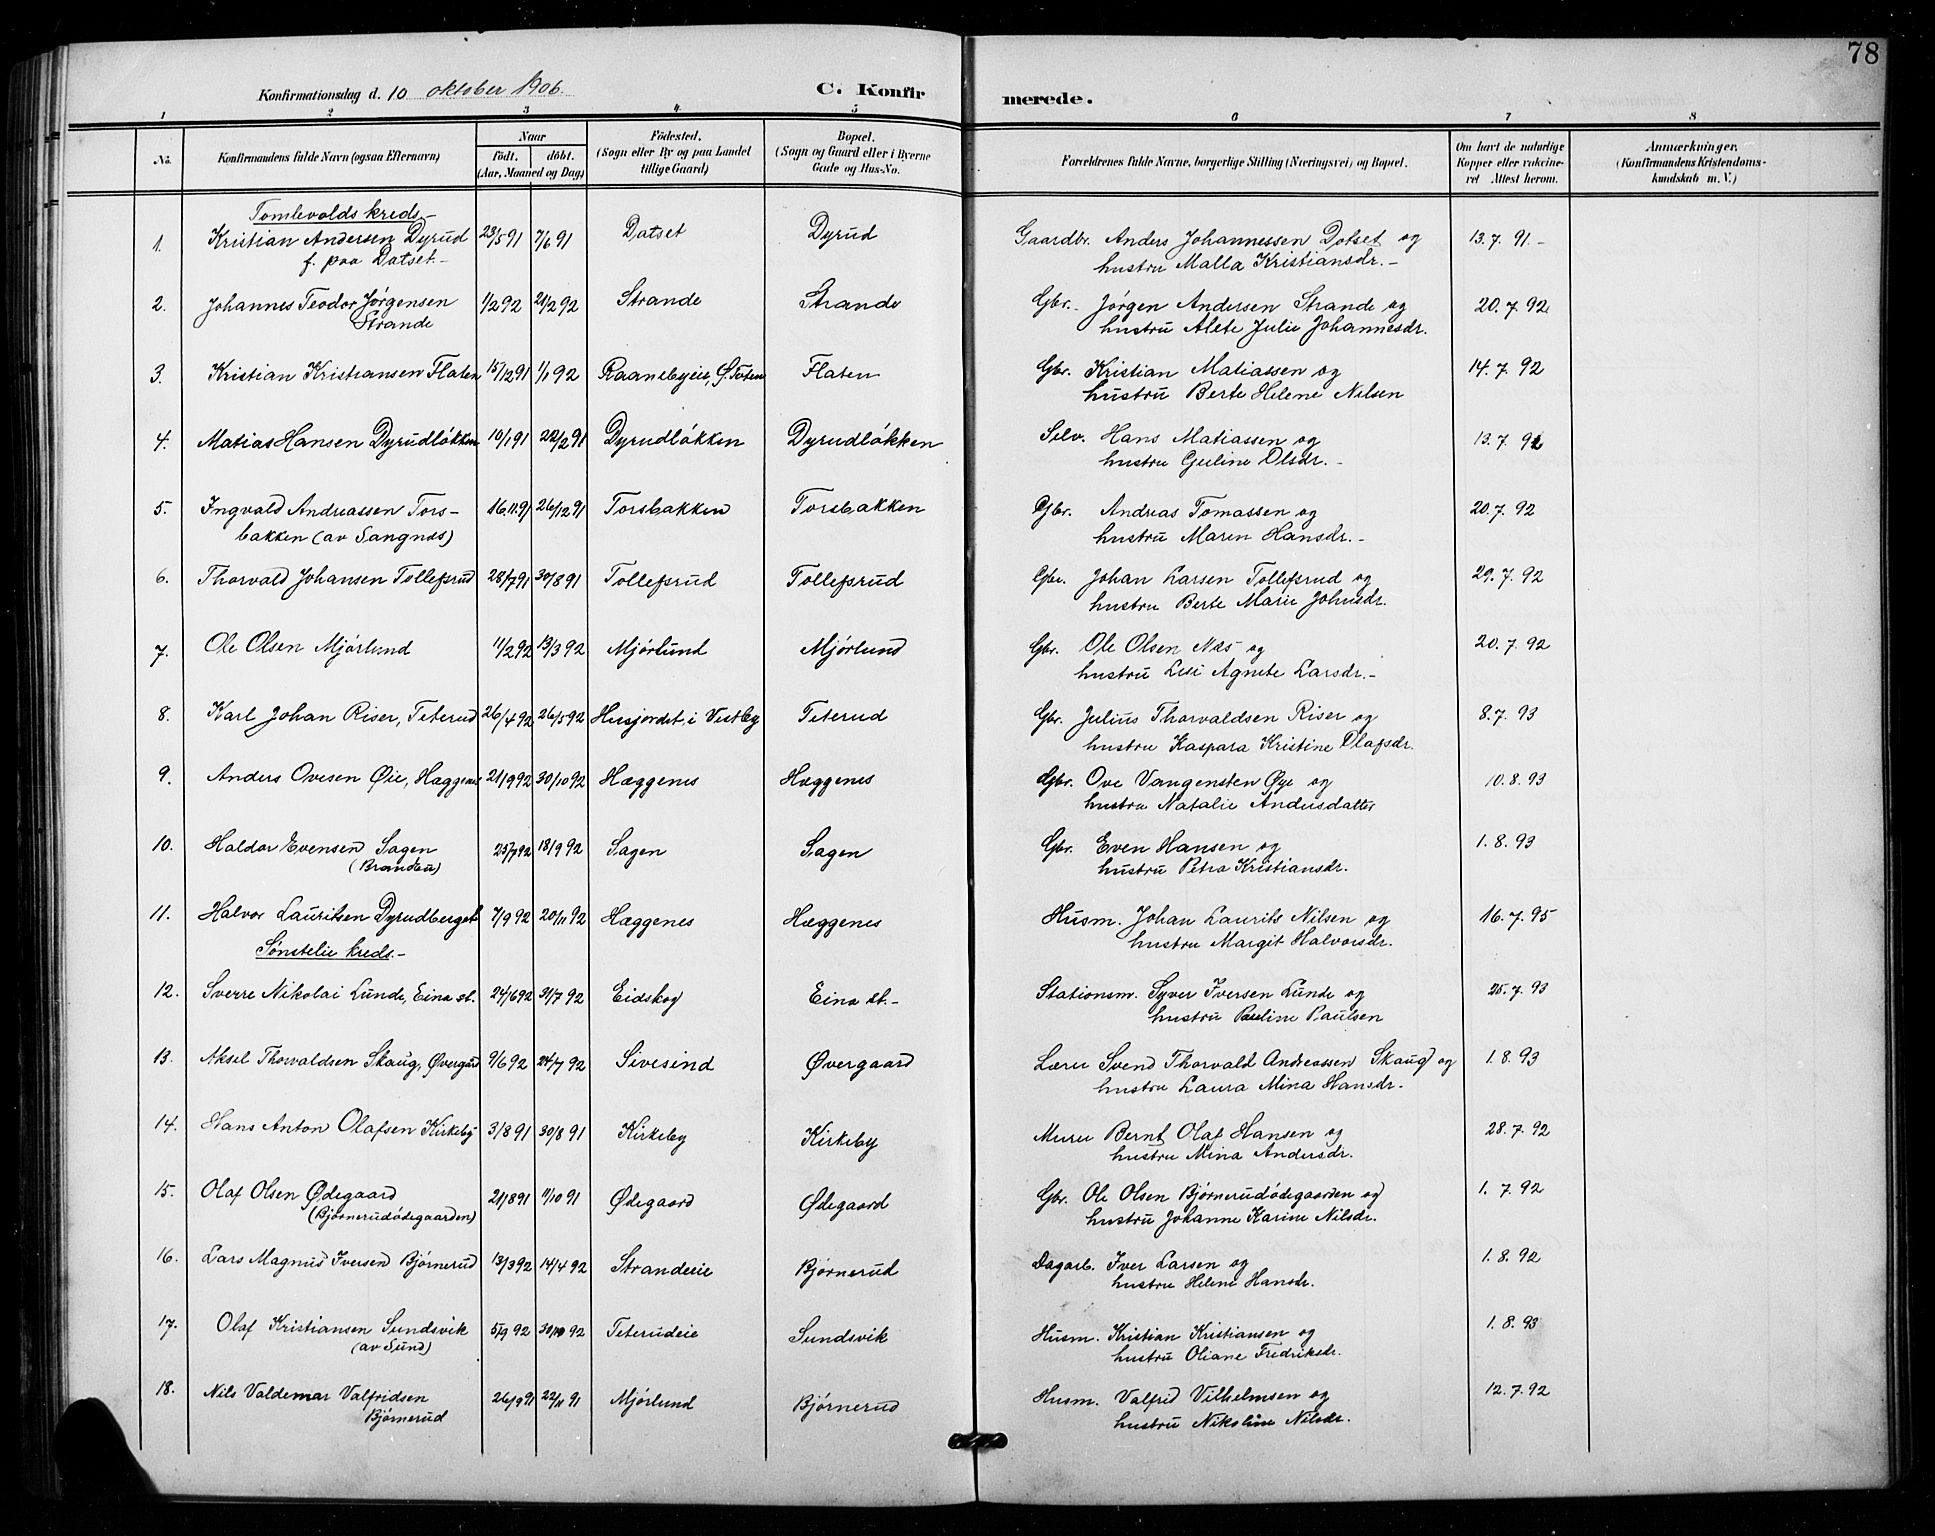 78
Konfirmationsdag d. 10 oktober 1906.
C. Konfirmerede.
1 2 3 4 5 6 7 8
No.
Konfirmandens fulde Navn (ogsaa Efternavn)
Naar
født. døbt.
(Aar, Maaned og Dag)
Fødested.
(Sogn eller By og paa Landet
tillige Gaard)
Bopæl.
(Sogn og Gaard eller i Byerne
Gade og Hus-No.
Forældrenes fulde Navne, borgerlige Stilling (Næringsvei) og Bopæl.
Om havt de naturlige
Kopper eller vakcine-
ret Attest herom.
Anmærkninger.
(Konfirmandens Kristendoms-
kundskab m. V.)
Tomlevolds kreds.-
1. Kristian Andersen Dyrud 23/5 91 7/6 91 Datset Dyrud Gaardbr. Anders Johannessen Dotset og 13.7.91.-
f. paa Datset.- hustru Malla Kristiansdr.-
2. Johannes Teodor Jørgensen 1/2 92 21/2 92 Strande Strande Gbr. Jørgen Andersen Strande og 20.7.92
Strande hustru Alete Julie Johannesdr.
3. Kristian Kristiansen Flaten 15/12 91 1/1 92 Raanebyeie, S. Toten Flaten Gbr. Kristian Matiassen og 14.7.92
hustru Berte Helene Nilsen
4. Matias Hansen Dyrudløkken 10/1 91 22/2 91 Dyrudløkken Dyrudløkken Selv. Hans Matiassen og 13.7.91
hustru Guline Olsdr.-
5. Ingvald Andreassen Tors- 16.11.91 26/12 91 Torsbakken Torsbakken Gbr. Andreas Tomassen og 20.7.92
bakken (av Sangnæs) hustru Maren Hansdr.-
6. Thorvald Johansen Tollefsrud 28/7 91 30/8 91 Tollefsrud Tollefsrud Gbr. Johan Larsen Tollefsrud og 29.7.92
hustru Berte Marie Johnsdr.
7. Ole Olsen Mjørlund 11/2 92 13/3 92 Mjørlund Mjørlund Gbr. Ole Olsen Næs og 20.7.92
hustru Lisi Agnete Larsdr.-
8. Karl Johan Riser, Teterud 26/4 92 26/5 92 Husjordet i Vestby Teterud Gbr. Julius Thorvaldsen Riser og 8.7.93
hustru Kaspara Kristine Olafsdr.
9. Anders Ovesen Øie, Hæggenes 21/9 92 30/10 92 Hæggenes Hæggenes Gbr. Ove Vangensten Øye og 10.8.93
hustru Natalie Andersdatter
10. Haldor Evensen Sagen 25/7 92 18/9 92 Sagen Sagen Gbr. Even Hansen og 1.8.93
(Brandbu) hustru Petra Kristiansdr.
11. Halvor Lauritsen Dyrudberget 7/9 92 20/11 92 Hæggenes Hæggenes Husm. Johan Laurits Nilsen og 16.7.95
hustru Margit Halvorsdr.
Sønstelie kreds.-
12. Sverre Nikolai Lunde, Eina st. 24/6 92 31/7 92 Eidskog Eina st.- Stationsm. Syver Iversen Lunde og 25.7.93
hustru Pauline Paulsen
13. Aksel Thorvaldsen Skaug, Øvergård 9/6 92 24/7 92 Sivesind Øvergaard Lærer Svend Thorvald Andreassen Skaug og 1.8.93
hustru Laura Mina Hansdr.
14. Hans Anton Olafsen Kirkeby 3/8 91 30/8 91 Kirkeby Kirkeby Murer Bernt Olaf Hansen og 28.7.92
hustru Mina Andersdr.
15. Olaf Olsen Ødegaard 21/8 91 11/10 91 Ødegaard Ødegaard Gbr. Ole Olsen Bjørnerudødegaarden og 1.7.92
(Bjørnerudødegaarden) hustru Johanne Karine Nilsdr.
16. Lars Magnus Iversen Bjørnerud 13/3 92 14/4 92 Strandeeie Bjørnerud Dagarb. Iver Larsen og 1.8.92
hustru Helene Hansdr.
17. Olaf Kristiansen Sundsvik 5/9 92 30/10 92 Teterudeie Sundsvik Husm. Kristian Kristiansen og 1.8.93
(av Sund) hustru Oliane Fredriksdr.
18. Nils Valdemar Valfridsen 26/9 91 22/11 91 Mjørlund Bjørnerud Husm. Valfrid Vilhelmsen og 12.7.92
Bjørnerud hustru Nikoline Nilsdr.